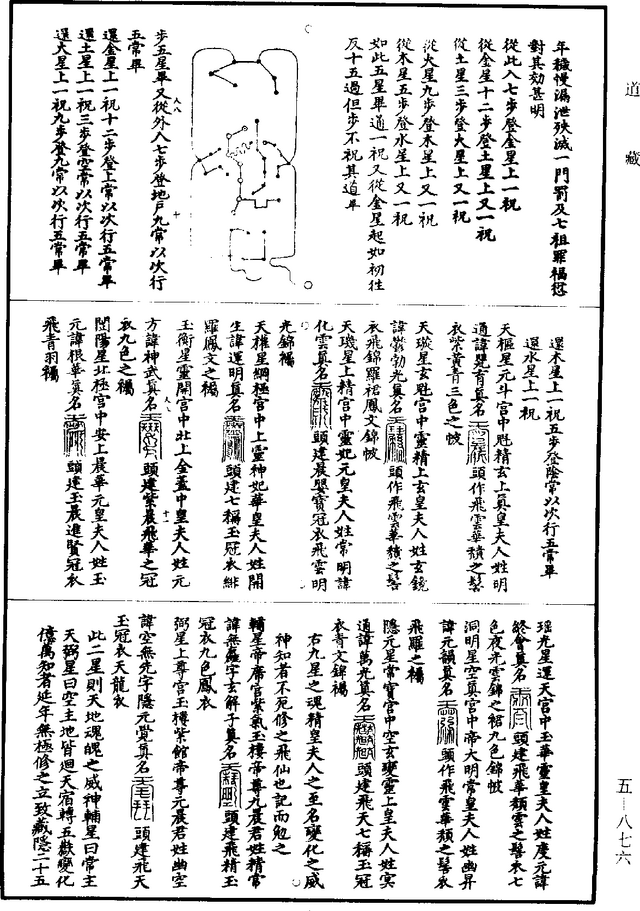 道藏
年穢慢漏泄殃滅一門罰及七祖罪福愆
對其効甚明
從此入七步登金星上一祝
從金星十二步登土星上又一祝
從土星三步登火星上又一祝
從火星九步登木星上又一祝
從木星五步登水星上又一祝
如此五星畢通一祝又從金星起如初往
反十五過但步不祝其道畢
步五星畢又從外入七步登地戶九常以次行
五常畢
還金星上一祝十二步登上常以次行五常畢
還土星上一祝三步登空常以次行五常畢
還火星上一祝九步登九常以次行五常畢
還木星上一祝五步登陰常以次行五常畢
還水星上一祝
天樞星元斗宮中魁精玄上真皇夫人姓明
通諱覽育真名 頭作飛雲華頹之髻
衣紫黃青三色之帔
天璇星玄魁宮中靈精上玄皇夫人姓玄鏡
諱 勃光真名 頭作飛雲華頹之髻
衣飛錦羅裙鳳文錦帔
天璣星上精宮中靈妃元皇夫人姓常明諱
化雲真名 頭建晨嬰寶冠衣飛雲明
光錦襦
天權星綱極宮中上靈神妃華皇夫人姓開
生諱運明真名 頭建七稱玉冠衣緋
羅鳳文之襦
玉衡星靈開宮中北上金蓋中皇夫人姓元
方諱神武真名 頭建紫晨飛華之冠
衣九色之襦
闓陽星北極宮中安上晨華元皇夫人姓玉
元諱根華真名 頭建玉晨進賢冠衣
飛青羽襦
瑤光星運天宮中玉華靈皇夫人姓度元諱
終會真名 頭建飛華頹雲之髻衣七
色夜光雲錦之裙九色錦帔
洞明星空真宮中帝大明常皇夫人姓幽昇
諱元韻真名 頭作飛雲華頹之髻衣
飛羅之襦
隱元星常寶宮中空玄變靈上皇夫人姓冥
通諱萬光真名 頭建飛天七稱玉冠
衣青文錦襦
右九星之魂精皇夫人之至名變化之威
神知者不死修之飛仙也記而勉之
輔星帝席宮紫氣玉樓帝尊九晨君姓精常
諱無 字玄解子真名 頭建飛精玉
冠衣九色鳳衣
弼星上尊宮玉樓紫館帝尊元晨君姓幽空
諱空無先字隱元覺真名 頭建飛天
玉冠衣天龍衣
此二星則天地魂魄之威神輔星曰常主
天弼星曰空主地皆迴天宿轉五歡變化
億萬知者延年無極修之立致藏隱二十五
五—八七六